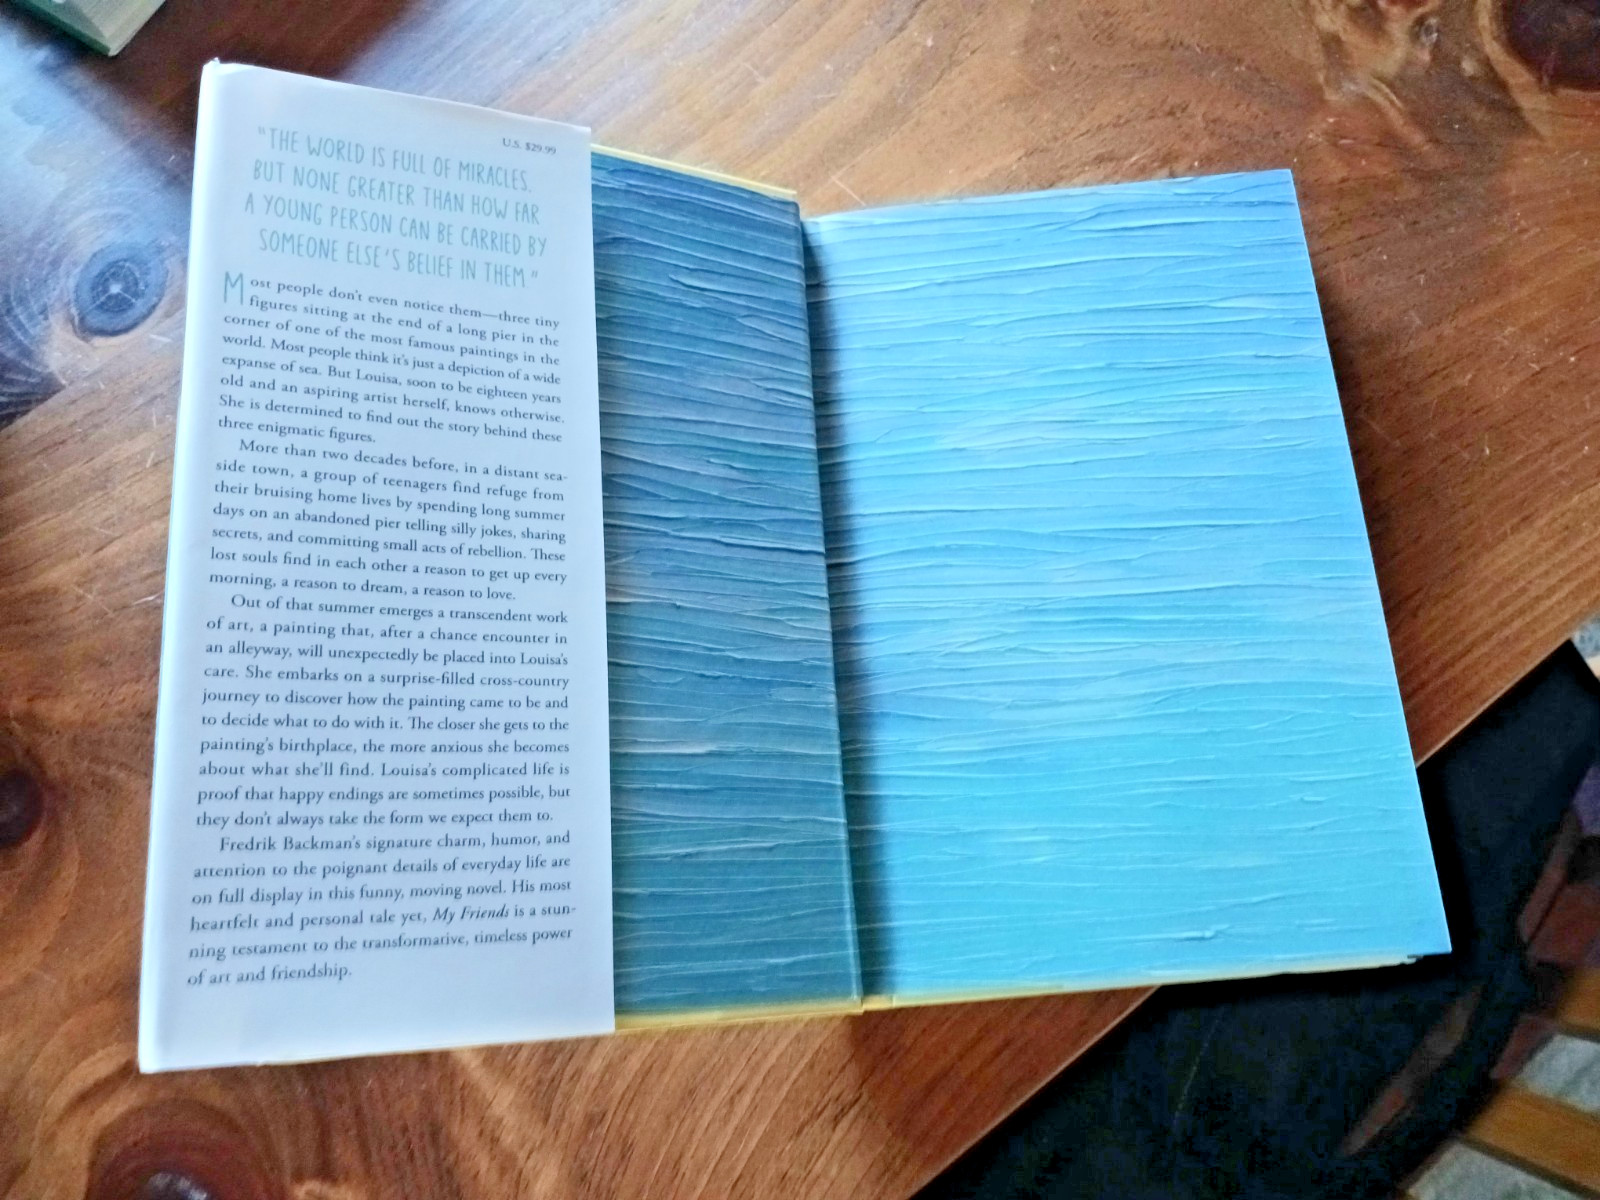 U.S. $29.99
"THE WORLD IS FULL OF MIRACLES,
BUT NONE GREATER THAN HOW FAR
A YOUNG PERSON CAN BE CARRIED BY
SOMEONE ELSE'S BELIEF IN THEM."
Most people don't even notice them—three tiny
figures sitting at the end of a long pier in the
corner of one of the most famous paintings in the
world. Most people think it's just a depiction of a wide
expanse of sea. But Louisa, soon to be eighteen years
old and an aspiring artist herself, knows otherwise.
She is determined to find out the story behind these
three enigmatic figures.
More than two decades before, in a distant sea-
side town, a group of teenagers find refuge from
their bruising home lives by spending long summer
days on an abandoned pier telling silly jokes, sharing
secrets, and committing small acts of rebellion. These
lost souls find in each other a reason to get up every
morning, a reason to dream, a reason to love.
Out of that summer emerges a transcendent work
of art, a painting that, after a chance encounter in
an alleyway, will unexpectedly be placed into Louisa's
care. She embarks on a surprise-filled cross-country
journey to discover how the painting came to be and
to decide what to do with it. The closer she gets to the
painting's birthplace, the more anxious she becomes
about what she'll find. Louisa's complicated life is
proof that happy endings are sometimes possible, but
they don't always take the form we expect them to.
Fredrik Backman's signature charm, humor, and
attention to the poignant details of everyday life are
on full display in this funny, moving novel. His most
heartfelt and personal tale yet, My Friends is a stun-
ning testament to the transformative, timeless power
of art and friendship.